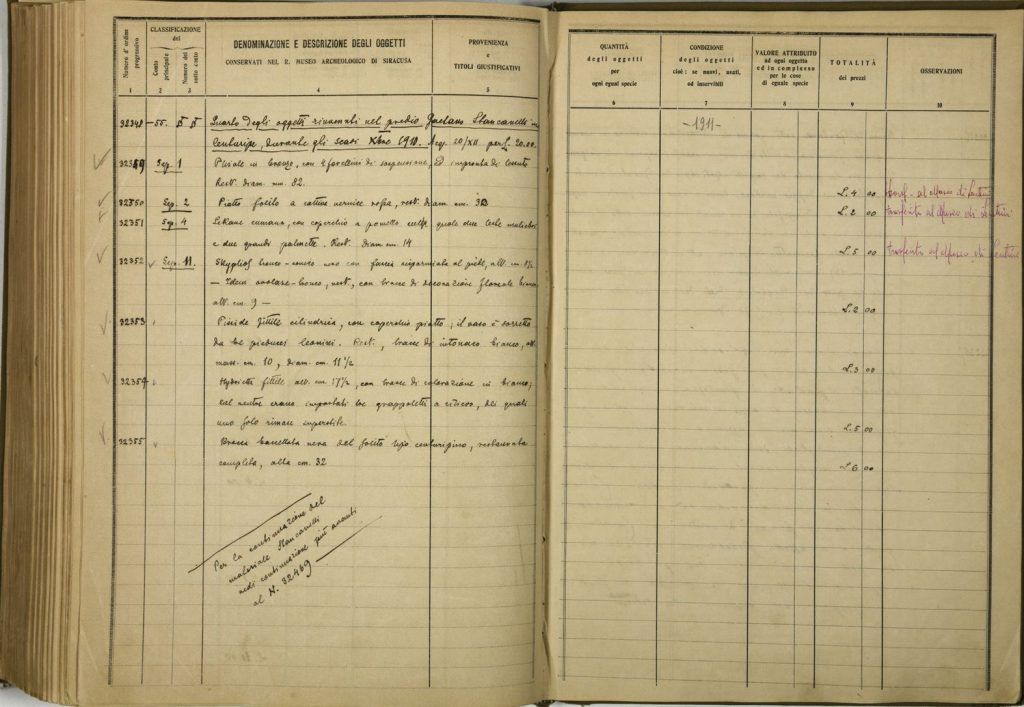 Numero d'ordine progressivo
CLASSIFICAZIONE
del
Conto principale
Numero del sotto conto
DENOMINAZIONE E DESCRIZIONE DEGLI OGGETTI
CONSERVATI NEL R. MUSEO ARCHEOLOGICO DI SIRACUSA
PROVENIENZA
e
TITOLI GIUSTIFICATIVI
1 2 3 4 5
32348 Quarto degli oggetti rinvenuti nel predio Gaetano Stancanelli in
Centuripe, durante gli scavi Xbre 1910. Acq. 20/XII per £. 20.00
32349 Sep. 1 Pisside in bronzo, con 4 forellini di sospensione, ed impronta di
Rest. diam. mm. 82.
32350 Sep. 2 Piatto fittile a vernice rest. diam. cm.
32351 Sep. 4 Lekane cumana, con coperchio a pometto, quale due teste muliebri
e due grandi palmette. Rest. Diam. cm. 14
32352 Sep. 11. Skyphos nero con fascia risparmiata al piede, alt. cm. 8½
— Idem rest., con tracce di decorazione floreale
alt. cm. 9 —
32353 Pisside fittile cilindrica, con coperchio piatto; il vaso è sorretto
da tre pieducci leonini. Rest., tracce di intonaco bianco, alt.
mass. cm. 10, diam. cm. 11½
32354 fittile alt. cm. 17½, con tracce di colorazione in bianco;
sul ventre erano impostati tre grappoletti a rilievo, dei quali
uno solo rimane superstite.
32355 nera del solito tipo centuripino, restaurata
completa, alta cm. 32
Per la continuazione del
materiale Stancanelli
vedi continuazione più avanti
al N. 32469
QUANTITÀ
degli oggetti
per
ogni egual specie
CONDIZIONE
degli oggetti
cioè: se nuovi, usati,
od inservibili
VALORE ATTRIBUITO
ad ogni oggetto
ed in complesso
per le cose
di eguale specie
TOTALITÀ
dei prezzi
OSSERVAZIONI
6 7 8 9 10
- 1911 -
L. 4 00 trasf. al Museo di Lentini
L. 2 00 trasferito al Museo di Lentini
L. 5 00 trasferito al Museo di Lentini
L. 2 00
L. 3 00
L. 5 00
L. 6 00